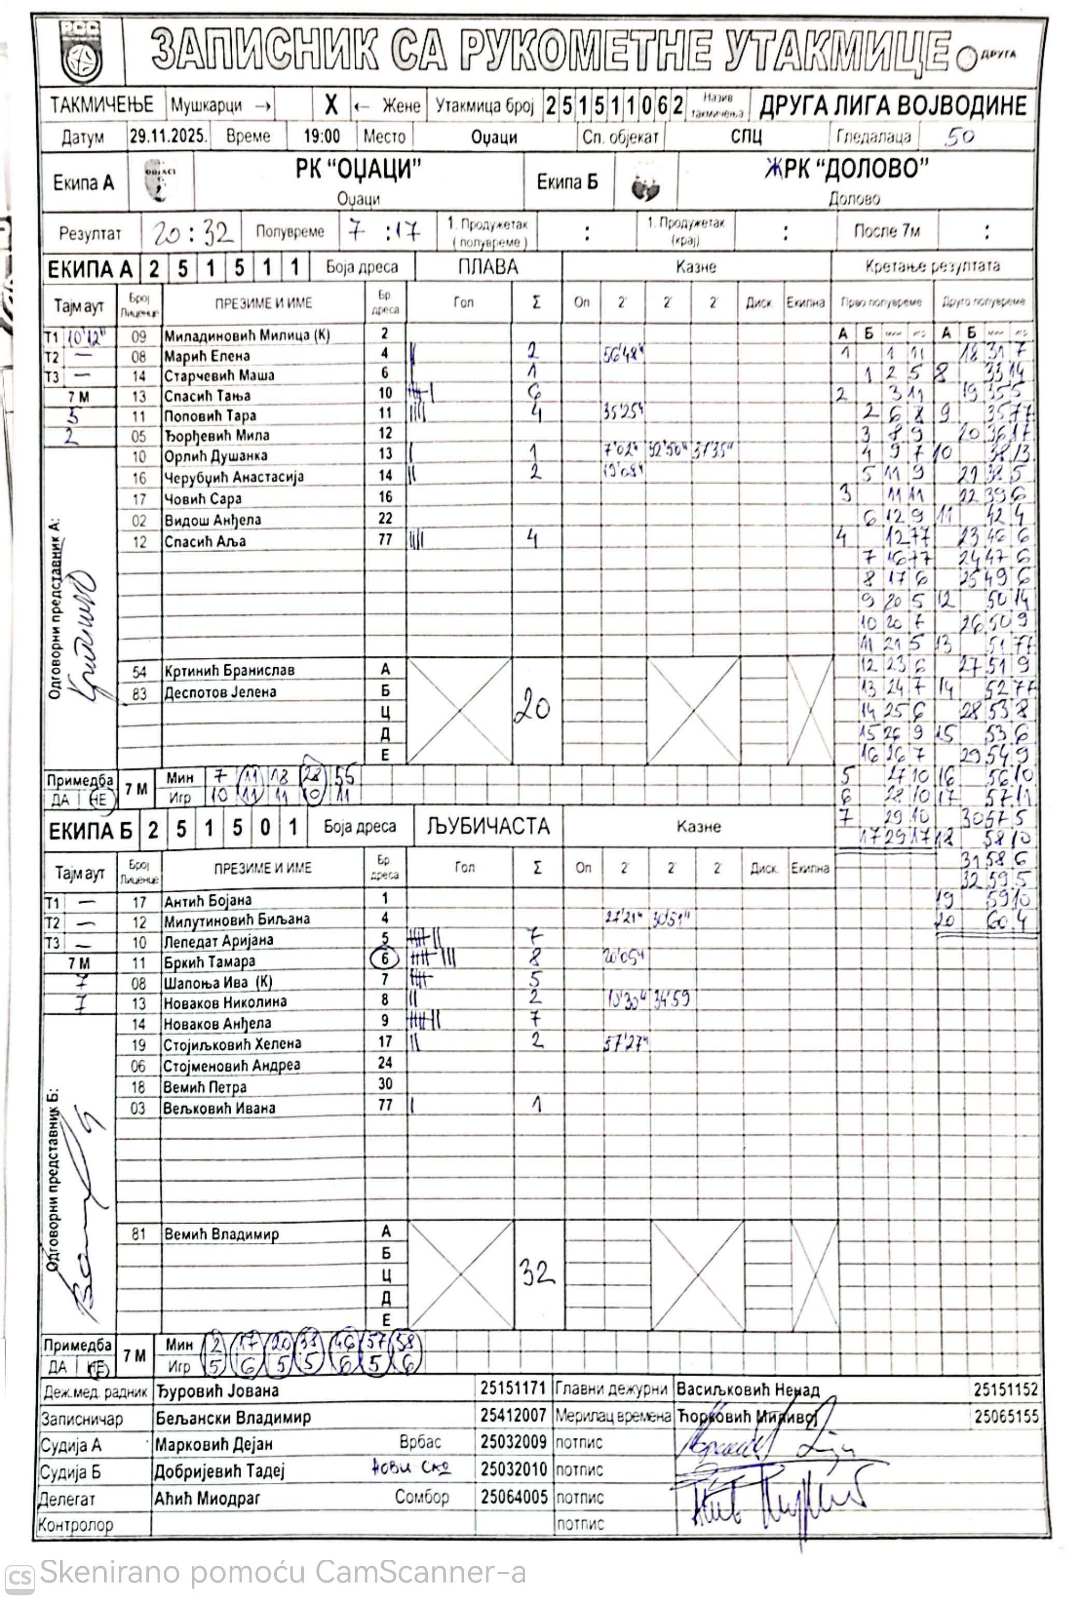 РСС
ЗАПИСНИК СА РУКОМЕТНЕ УТАКМИЦЕ ДРУГА
ТАКМИЧЕЊЕ Мушкарци → X ← Жене Утакмица број 2 5 1 5 1 1 0 6 2 Назив такмичења ДРУГА ЛИГА ВОЈВОДИНЕ
Датум 29.11.2025. Време 19:00 Место Оџаци Сп. објекат СПЦ Гледалаца 50
Екипа А РК "ОЏАЦИ" Екипа Б ЖРК "ДОЛОВО"
Оџаци Долово
Резултат 20 : 32 Полувреме 7 : 17 1. Продужетак (полувреме) : 1. Продужетак (крај) : После 7м :
ЕКИПА А 2 5 1 5 1 1 Боја дреса ПЛАВА Казне Кретање резултата
Тајм аут Број Лиценце ПРЕЗИМЕ И ИМЕ Бр дреса Гол Σ Оп 2' 2' 2' Диск. Екипна Прво полувреме Друго полувреме
Т1 10'12" 09 Миладиновић Милица (К) 2 А Б мин иг. А Б мин иг.
Т2 — 08 Марић Елена 4 || 2 56'48" 1 1 11 18 31 7
Т3 — 14 Старчевић Маша 6 | 1 1 2 5 8 33 14
7 М 13 Спасић Тања 10 |||| | 6 2 3 11 19 35 5
5 11 Поповић Тара 11 |||| 4 35'25" 2 6 8 9 35 77
2 05 Ђорђевић Мила 12 3 8 9 20 36 17
10 Орлић Душанка 13 | 1 7'02" 31'35" 4 9 7 10 38 13
16 Черубџић Анастасија 14 || 2 19'08" 5 11 9 21 38 5
17 Човић Сара 16 3 11 11 22 39 6
02 Видош Анђела 22 6 12 9 11 42 4
12 Спасић Аља 77 |||| 4 4 12 77 23 46 6
7 16 77 24 47 6
8 17 6 25 49 6
9 20 5 12 50 14
10 20 7 26 50 9
11 21 5 13 51 77
54 Кртинић Бранислав А 12 23 6 27 51 9
83 Деспотов Јелена Б 20 13 24 7 14 52 77
Ц 14 25 6 28 53 8
Д 15 26 9 15 53 6
Е 16 26 7 29 54 9
Одговорни представник А:
Примедба ДА НЕ 7 М Мин 7 11 18 28 55 5 27 10 16 56 10
Игр 10 11 11 10 11 6 28 10 17 57 11
ЕКИПА Б 2 5 1 5 0 1 Боја дреса ЉУБИЧАСТА Казне 7 29 10 30 57 5
17 29 17 18 58 10
Тајм аут Број Лиценце ПРЕЗИМЕ И ИМЕ Бр дреса Гол Σ Оп 2' 2' 2 Диск. Екипна 31 58 6
32 59 5
Т1 — 17 Антић Бојана 1 19 59 10
Т2 — 12 Милутиновић Биљана 4 27'21" 30'51" 20 60 4
Т3 — 10 Лепедат Аријана 5 |||| || 7
7 М 11 Бркић Тамара 6 |||| ||| 8 20'05"
7 08 Шапоња Ива (К) 7 |||| 5
7 13 Новаков Николина 8 || 2 10'30" 34'59
14 Новаков Анђела 9 |||| || 7
19 Стојиљковић Хелена 17 || 2 57'27"
06 Стојменовић Андреа 24
18 Вемић Петра 30
03 Вељковић Ивана 77 | 1
Одговорни представник Б:
81 Вемић Владимир А
Б
Ц 32
Д
Е
Примедба ДА НЕ 7 М Мин 2 17 20 33 46 57 58
Игр 5 6 5 5 6 5 6
Деж.мед. радник Ђуровић Јована 25151171 Главни дежурни Васиљковић Ненад 25151152
Записничар Бељански Владимир 25412007 Мерилац времена Ћорковић Миливој 25065155
Судија А Марковић Дејан Врбас 25032009 потпис
Судија Б Добријевић Тадеј НОВИ САД 25032010 потпис
Делегат Аћић Миодраг Сомбор 25064005 потпис
Контролор потпис
CS Skenirano pomoću CamScanner-a